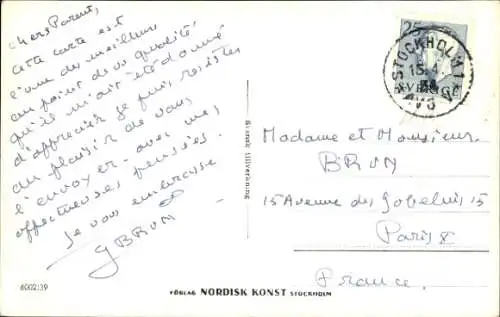 chers Parents,
cette carte est
l'une des meilleures
au point de vue qualité
qu'il m'ait été donné
d'apprécier. Je puis résister
au plaisir de vous
l'envoyer avec mes
affectueuses pensées.
Je vous embrasse
G BRUN
6002:39
Svensk tillverkning
FÖRLAG NORDISK KONST STOCKHOLM
25
STOCKHOLM 1
15.4
SVERIGE
AVG
Madame et Monsieur
BRUN
15 Avenue des Gobelins 15
Paris V
France.